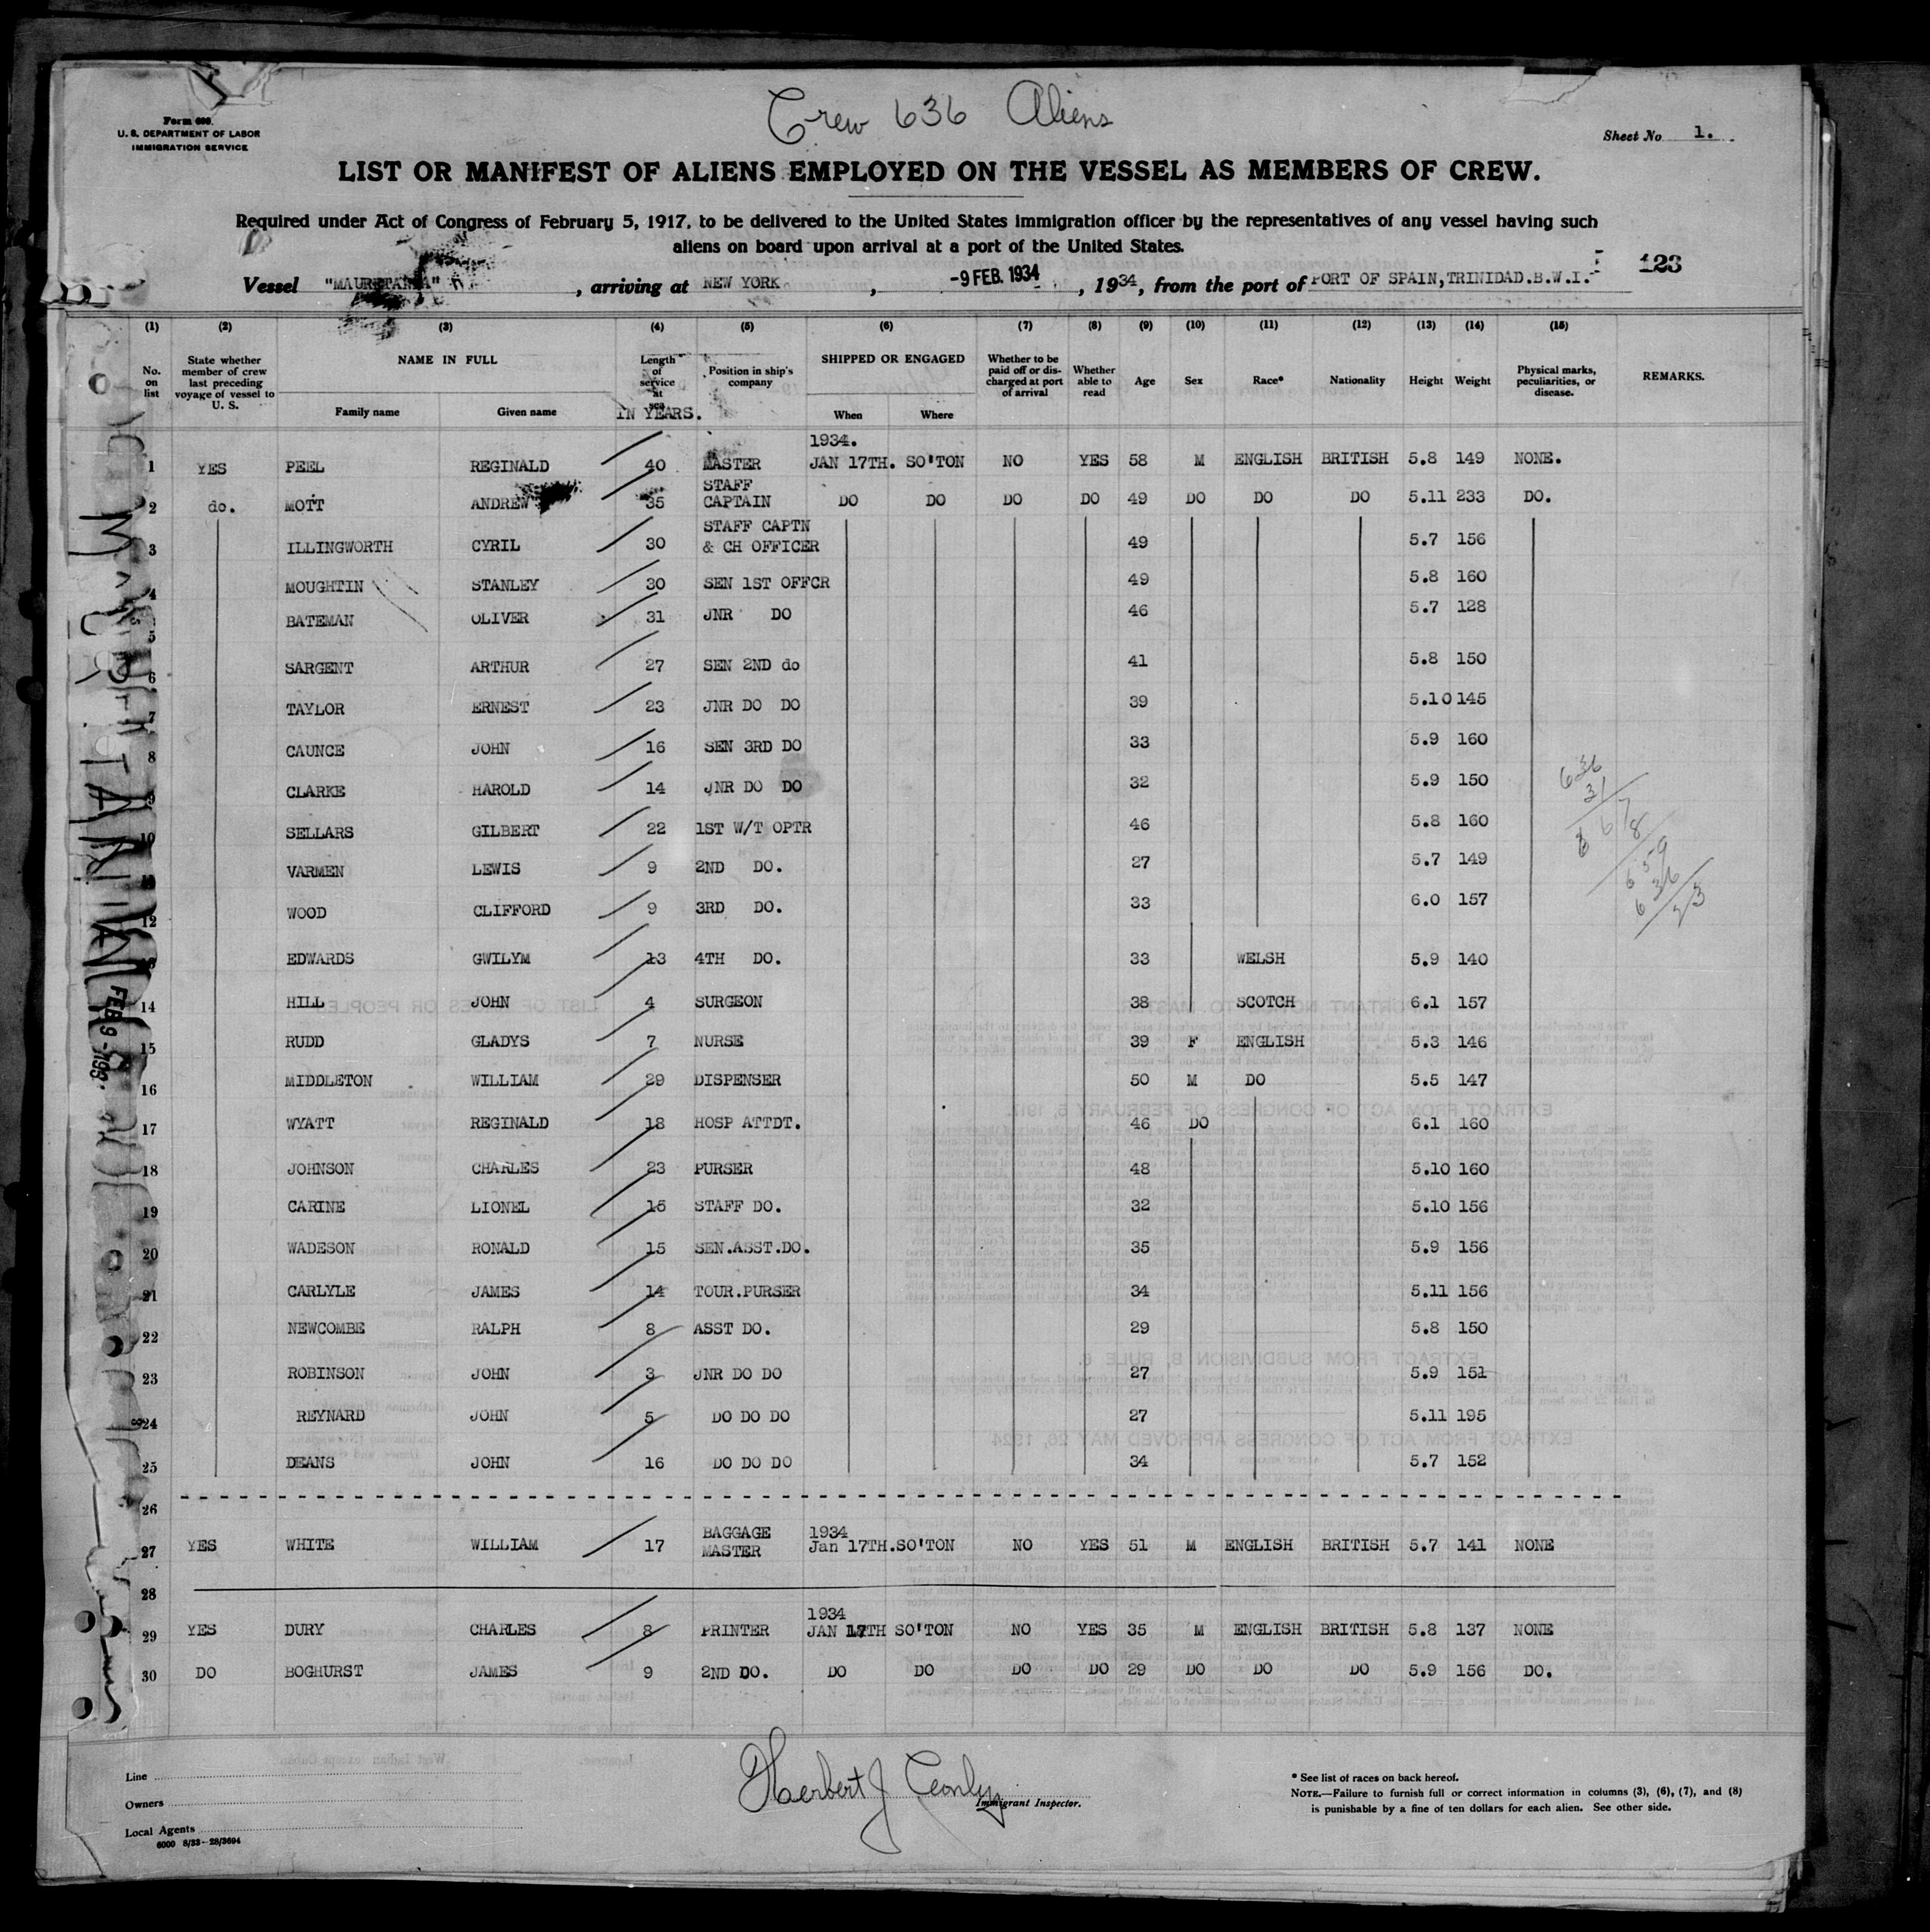 Crew 636 Aliens
Form 689.
U. S. DEPARTMENT OF LABOR
IMMIGRATION SERVICE
Sheet No. 1.
LIST OR MANIFEST OF ALIENS EMPLOYED ON THE VESSEL AS MEMBERS OF CREW.
Required under Act of Congress of February 5, 1917, to be delivered to the United States immigration officer by the representatives of any vessel having such
aliens on board upon arrival at a port of the United States.
123
Vessel "MAURETANIA", arriving at NEW YORK, -9 FEB. 1934, 1934, from the port of PORT OF SPAIN,TRINIDAD.B.W.I.
(1) (2) (3) (4) (5) (6) (7) (8) (9) (10) (11) (12) (13) (14) (15)
No. on list | State whether member of crew last preceding voyage of vessel to U. S. | NAME IN FULL Family name Given name | Length of service at sea IN YEARS. | Position in ship's company | SHIPPED OR ENGAGED When Where | Whether to be paid off or discharged at port of arrival | Whether able to read | Age | Sex | Race* | Nationality | Height | Weight | Physical marks, peculiarities, or disease. | REMARKS.
1934.
1 YES PEEL REGINALD 40 MASTER JAN 17TH. SO'TON NO YES 58 M ENGLISH BRITISH 5.8 149 NONE.
2 do. MOTT ANDREW 35 STAFF CAPTAIN DO DO DO DO 49 DO DO DO 5.11 233 DO.
3 ILLINGWORTH CYRIL 30 STAFF CAPTN & CH OFFICER 49 5.7 156
4 MOUGHTIN STANLEY 30 SEN 1ST OFFCR 49 5.8 160
5 BATEMAN OLIVER 31 JNR DO 46 5.7 128
6 SARGENT ARTHUR 27 SEN 2ND do 41 5.8 150
7 TAYLOR ERNEST 23 JNR DO DO 39 5.10 145
8 CAUNCE JOHN 16 SEN 3RD DO 33 5.9 160
9 CLARKE HAROLD 14 JNR DO DO 32 5.9 150
10 SELLARS GILBERT 22 1ST W/T OPTR 46 5.8 160
11 VARMEN LEWIS 9 2ND DO. 27 5.7 149
12 WOOD CLIFFORD 9 3RD DO. 33 6.0 157
13 EDWARDS GWILYM 13 4TH DO. 33 WELSH 5.9 140
14 HILL JOHN 4 SURGEON 38 SCOTCH 6.1 157
15 RUDD GLADYS 7 NURSE 39 F ENGLISH 5.3 146
16 MIDDLETON WILLIAM 29 DISPENSER 50 M DO 5.5 147
17 WYATT REGINALD 18 HOSP ATTDT. 46 DO 6.1 160
18 JOHNSON CHARLES 23 PURSER 48 5.10 160
19 CARINE LIONEL 15 STAFF DO. 32 5.10 156
20 WADESON RONALD 15 SEN.ASST.DO. 35 5.9 156
21 CARLYLE JAMES 14 TOUR.PURSER 34 5.11 156
22 NEWCOMBE RALPH 8 ASST DO. 29 5.8 150
23 ROBINSON JOHN 3 JNR DO DO 27 5.9 151
24 REYNARD JOHN 5 DO DO DO 27 5.11 195
25 DEANS JOHN 16 DO DO DO 34 5.7 152
26
1934
27 YES WHITE WILLIAM 17 BAGGAGE MASTER Jan 17TH. SO'TON NO YES 51 M ENGLISH BRITISH 5.7 141 NONE
28
1934
29 YES DURY CHARLES 8 PRINTER JAN 17TH SO'TON NO YES 35 M ENGLISH BRITISH 5.8 137 NONE
30 DO BOGHURST JAMES 9 2ND DO. DO DO DO DO 29 DO DO DO 5.9 156 DO.
636
31
678
659
636
23
MAURETANIA
FEB 9 - 193
Line
Owners
Local Agents
6000 8/33-28/3694
Herbert J
Immigrant Inspector.
* See list of races on back hereof.
NOTE.—Failure to furnish full or correct information in columns (3), (6), (7), and (8)
is punishable by a fine of ten dollars for each alien. See other side.